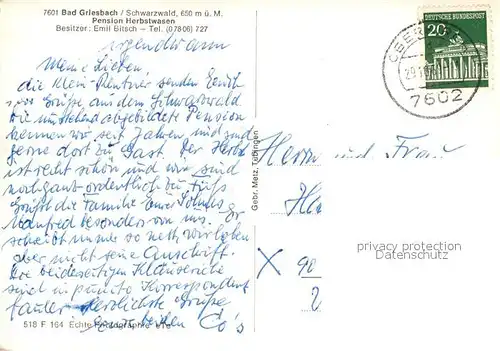 7601 Bad Griesbach / Schwarzwald, 650 m ü. M.
Pension Herbstwasen
Besitzer: Emil Bitsch – Tel. (07806) 727
irgendwann
Meine Lieben
die Klein-Rentner senden Euch
Grüße aus dem Schwarzwald
Die umstehend abgebildete Pension
kennen wir seit Jahren und sind
gerne dort zu Gast. Der Herbst
ist recht schön und wir sind
noch ganz ordentlich zu Fuß
Grüßt die Familie Eures Sohnes
Manfred besonders von uns. Er
schreibt immer so nett, wir haben
aber nicht seine Anschrift.
Die beiderseitigen
sind in puncto Korrespondent
fauler Herzlichste Grüße
Eure beiden Co's
518 F 164 Echte Photographie
Gebr. Metz, Tübingen
DEUTSCHE BUNDESPOST
20
7602
Herrn und Frau
Ha
X 90
privacy protection
Datenschutz